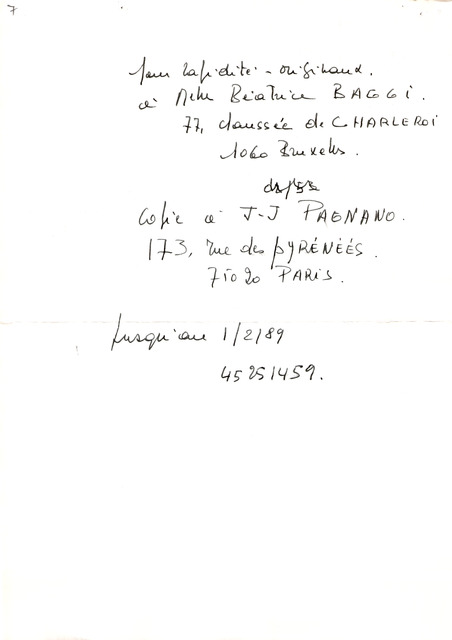 7
Pour rapidité - originaux.
à Melle Béatrice BAGGI.
77, chaussée de CHARLEROI
1060 Bruxelles.
copie à J-J PAGNANO.
173, rue des PYRÉNÉES.
75020 PARIS.
Jusqu'au 1/2/89
45251459.